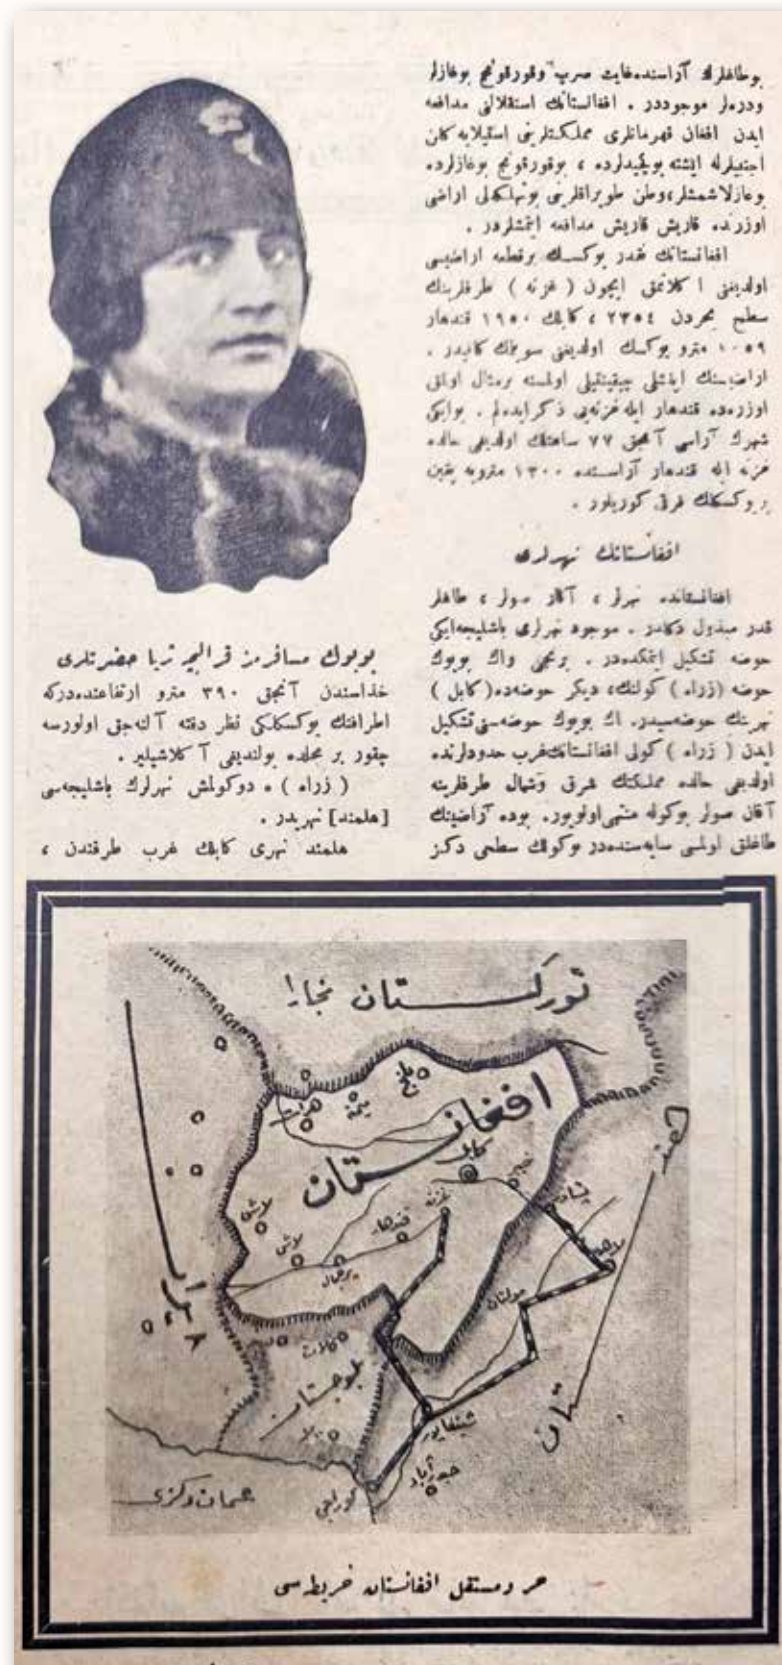 بوطاغلرك آراسنده‌غایت صرپ وقورقونج بوغازلر
ودره‌لر موجوددر . افغانستانك استقلالنی مدافعه
ایدن افغان قهرمانلری مملكتلرینی استیلایه‌كلن
اجنبیلرله ایشته بوكچیدلرده ، بوقورقونج بوغازلرده
بوغازلاشمشلر،وطن طوپراقلرینی بوتهلكه‌لی اراضی
اوزرنده قاریش قاریش مدافعه ایتمشلردر .
افغانستانك نقدر یوكسك برقطعه اراضیسی
اولدیغنی اكلاتمق ایچون ( غزنه ) طرفلرینك
سطح بحردن ٢٣٥٤ ، كابلك ١٩٥٠ قندهار
١٠٥٩ مترو یوكسك اولدیغنی سویلمك كافیدر .
اراضیسنك اینشلی چیقینتیلی اولمسنه برمثال اولمق
اوزره‌ده قندهار ایله غزنه‌یی ذكر ایده‌لم . بوایكی
شهرك آراسی آنجق ٧٧ ساعتلك اولدیغی حالده
غزنه ایله قندهار آراسنده ١٣٠٠ مترویه یقین
بر یوكسكلك فرقی كوریلور .
افغانستانك نهرلری
افغانستانده نهرلر ، آقار صولر ، طاغلر
قدر مبذول دكلدر . موجود نهرلری باشلیجه‌ایكی
حوضه تشكیل ایتمكده‌در . برنجی واك بویوك
حوضه (زراه) كولنك، دیكر حوضه‌ده( كابل )
نهرینك حوضه‌سیدر. اك بویوك حوضه‌سنی تشكیل
ایدن ( زراه ) كولی افغانستانك‌غرب حدودلرنده
اولدیغی حالده مملكتك شرق وشمال طرفلرینه
آقان صولر بوكوله منتهی‌اولویور. بوده آراضینك
طاغلق اولمسی سایه‌سنده‌در بوكولك سطحی دكز
بویوك مسافرمز قرالیچه ثریا حضرتلری
حذاسندن آنجق ٣٩٠ مترو ارتفاعنده‌دركه
اطرافنك یوكسكلكی نظر دقته آلنه‌جق اولورسه
چقور بر محلده بولندیغی آكلاشیلیر .
( زراه ) ه دوكولمش نهرلرك باشلیجه‌سی
[هلمند] نهریدر .
هلمند نهری كابلك غرب طرفندن ،
توركستان بخارا
افغانستان
بلخ
میمنه
هرات
كابل
غزنه
قندهار
لاش
لاش
پشاور
مولتان
هندستان
ایران
كلات
بلوجستان
شیكاپور
حیدرآباد
كوراچی
عمان دكزی
حر ومستقل افغانستان خریطه‌سی